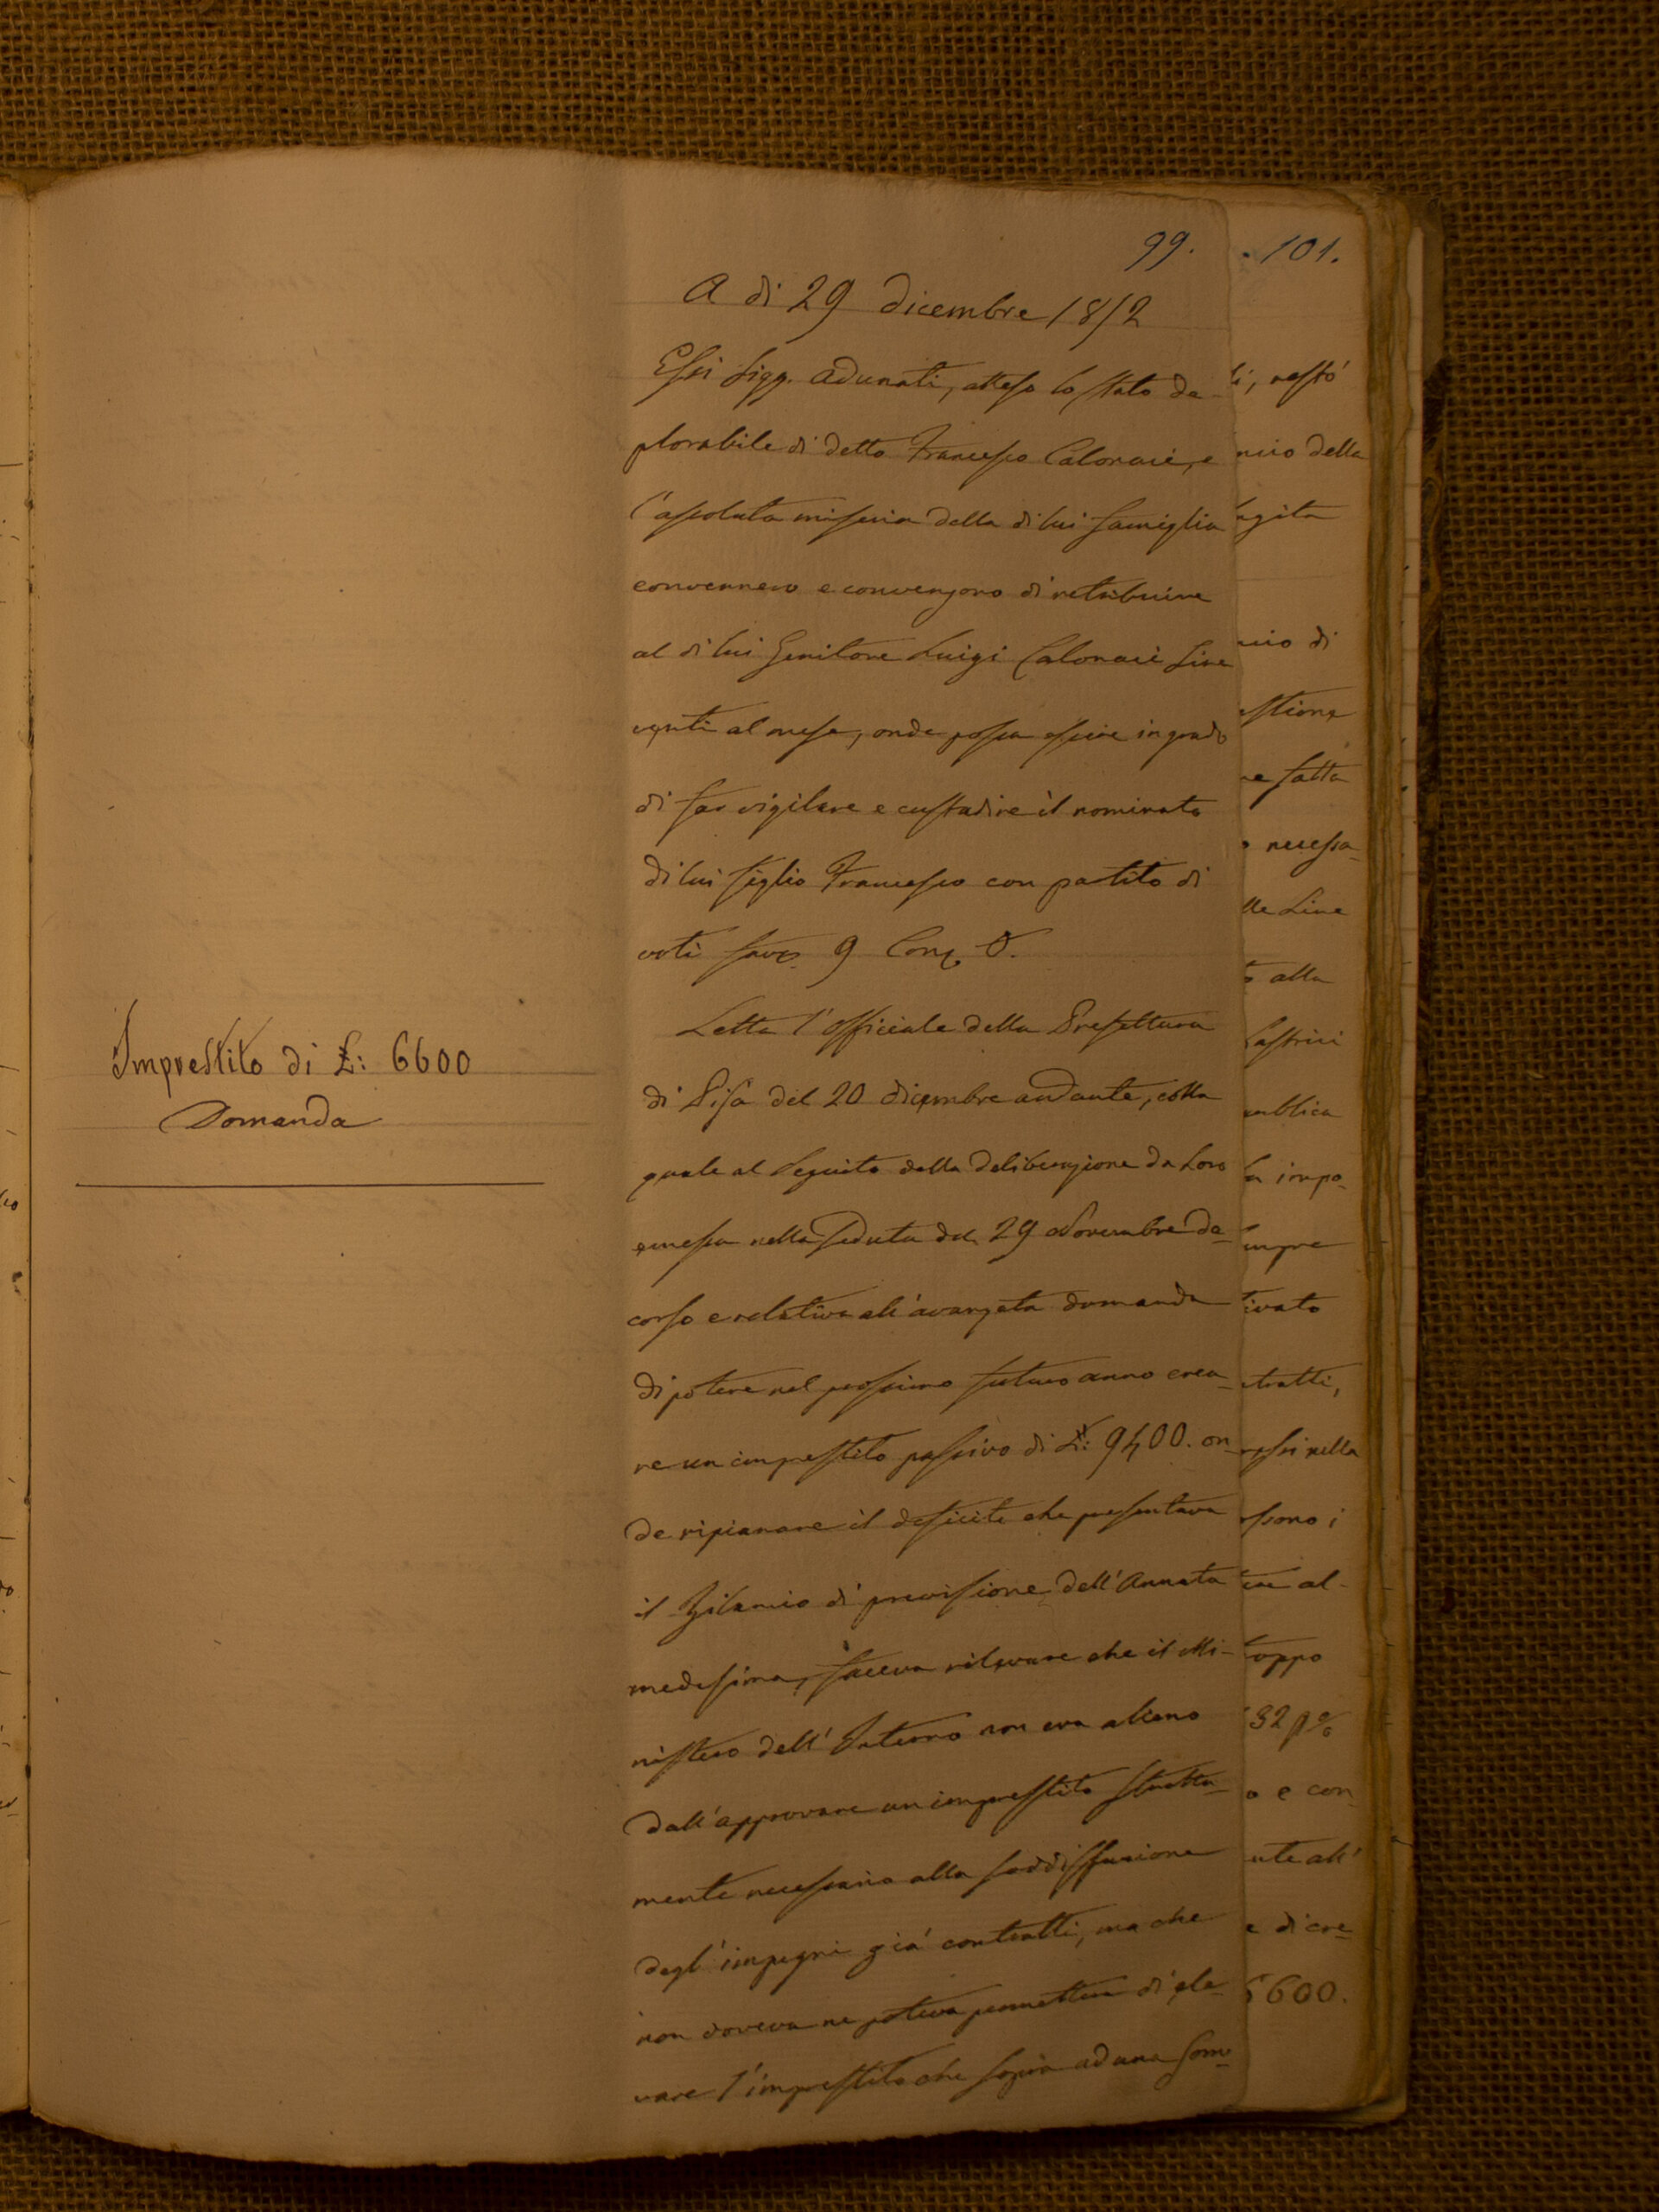 99.
A di 29 dicembre 1852
Essi Sigg. adunati, atteso lo stato de-
plorabile di detto Francesco Calonaci, e
l'assoluta miseria della di lui famiglia
convennero e convengono di retribuire
al di lui Genitore Luigi Calonaci Lire
venti al mese, onde possa essere in grado
di far vigilare e custodire il nominato
di lui figlio Francesco con partito di
voti favo. 9 Con. 0.
Imprestito di £: 6600
Domanda
Letta l'officiale della Prefettura
di Pisa del 20 dicembre andante, colla
quale al seguito della deliberazione da Loro
emessa nella seduta del 29 Novembre de-
corso e relativa all'avanzata domanda
di potere nel prossimo futuro anno crea-
re un imprestito passivo di £: 9400. on-
de ripianare il deficite che presentava
il Bilancio di previsione dell'Annata
medesima, faceva rilevare che il Mi-
nistero dell'Interno non era alieno
dall'approvare un imprestito stretta-
mente necessario alla soddisfazione
degl'impegni già contratti, ma che
non doveva ne poteva permettere di ele-
vare l'imprestito che sopra ad una som-
101.
li, restó
ncio della
agita
cio di
estione
ne fatta
o necessa-
lle Lire
o alla
Lastrici
ubblica
la impo-
empre
tivato
tratti,
essi nella
ssono i
ere al-
toppo
32 p%
o e con-
nte all'
e di cre-
6600.